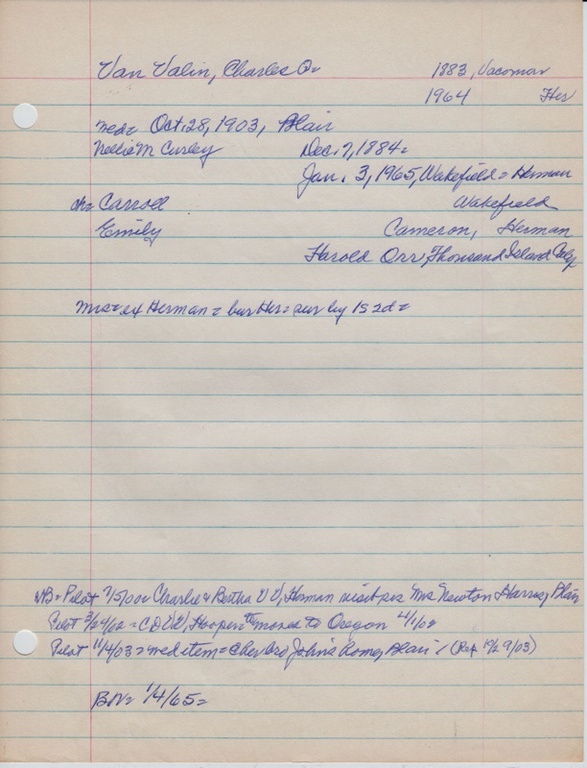 Van Valin, Charles O= 1883, Vacoma=
1964 Her
med= Oct. 28, 1903, Blair
Nellie M Curley Dec. 7, 1884=
Jan. 3, 1965, Wakefield = Herman
ch= Carroll Wakefield
Emily Cameron, Herman
Harold Orr, Thousand Island
Mrs= ex Herman = bur Her= sur by 1s 2d=
NB= Pilot 7/5/00= Charlie & Bertha VV, Herman visit sis Mrs Newton Harvey, Blair
Pilot = C O VV, Hooper to Oregon 4/1/02
Pilot 11/4/03= wed item = bro John's home, Blair (Rep 9/03)
BN= 1/4/65=